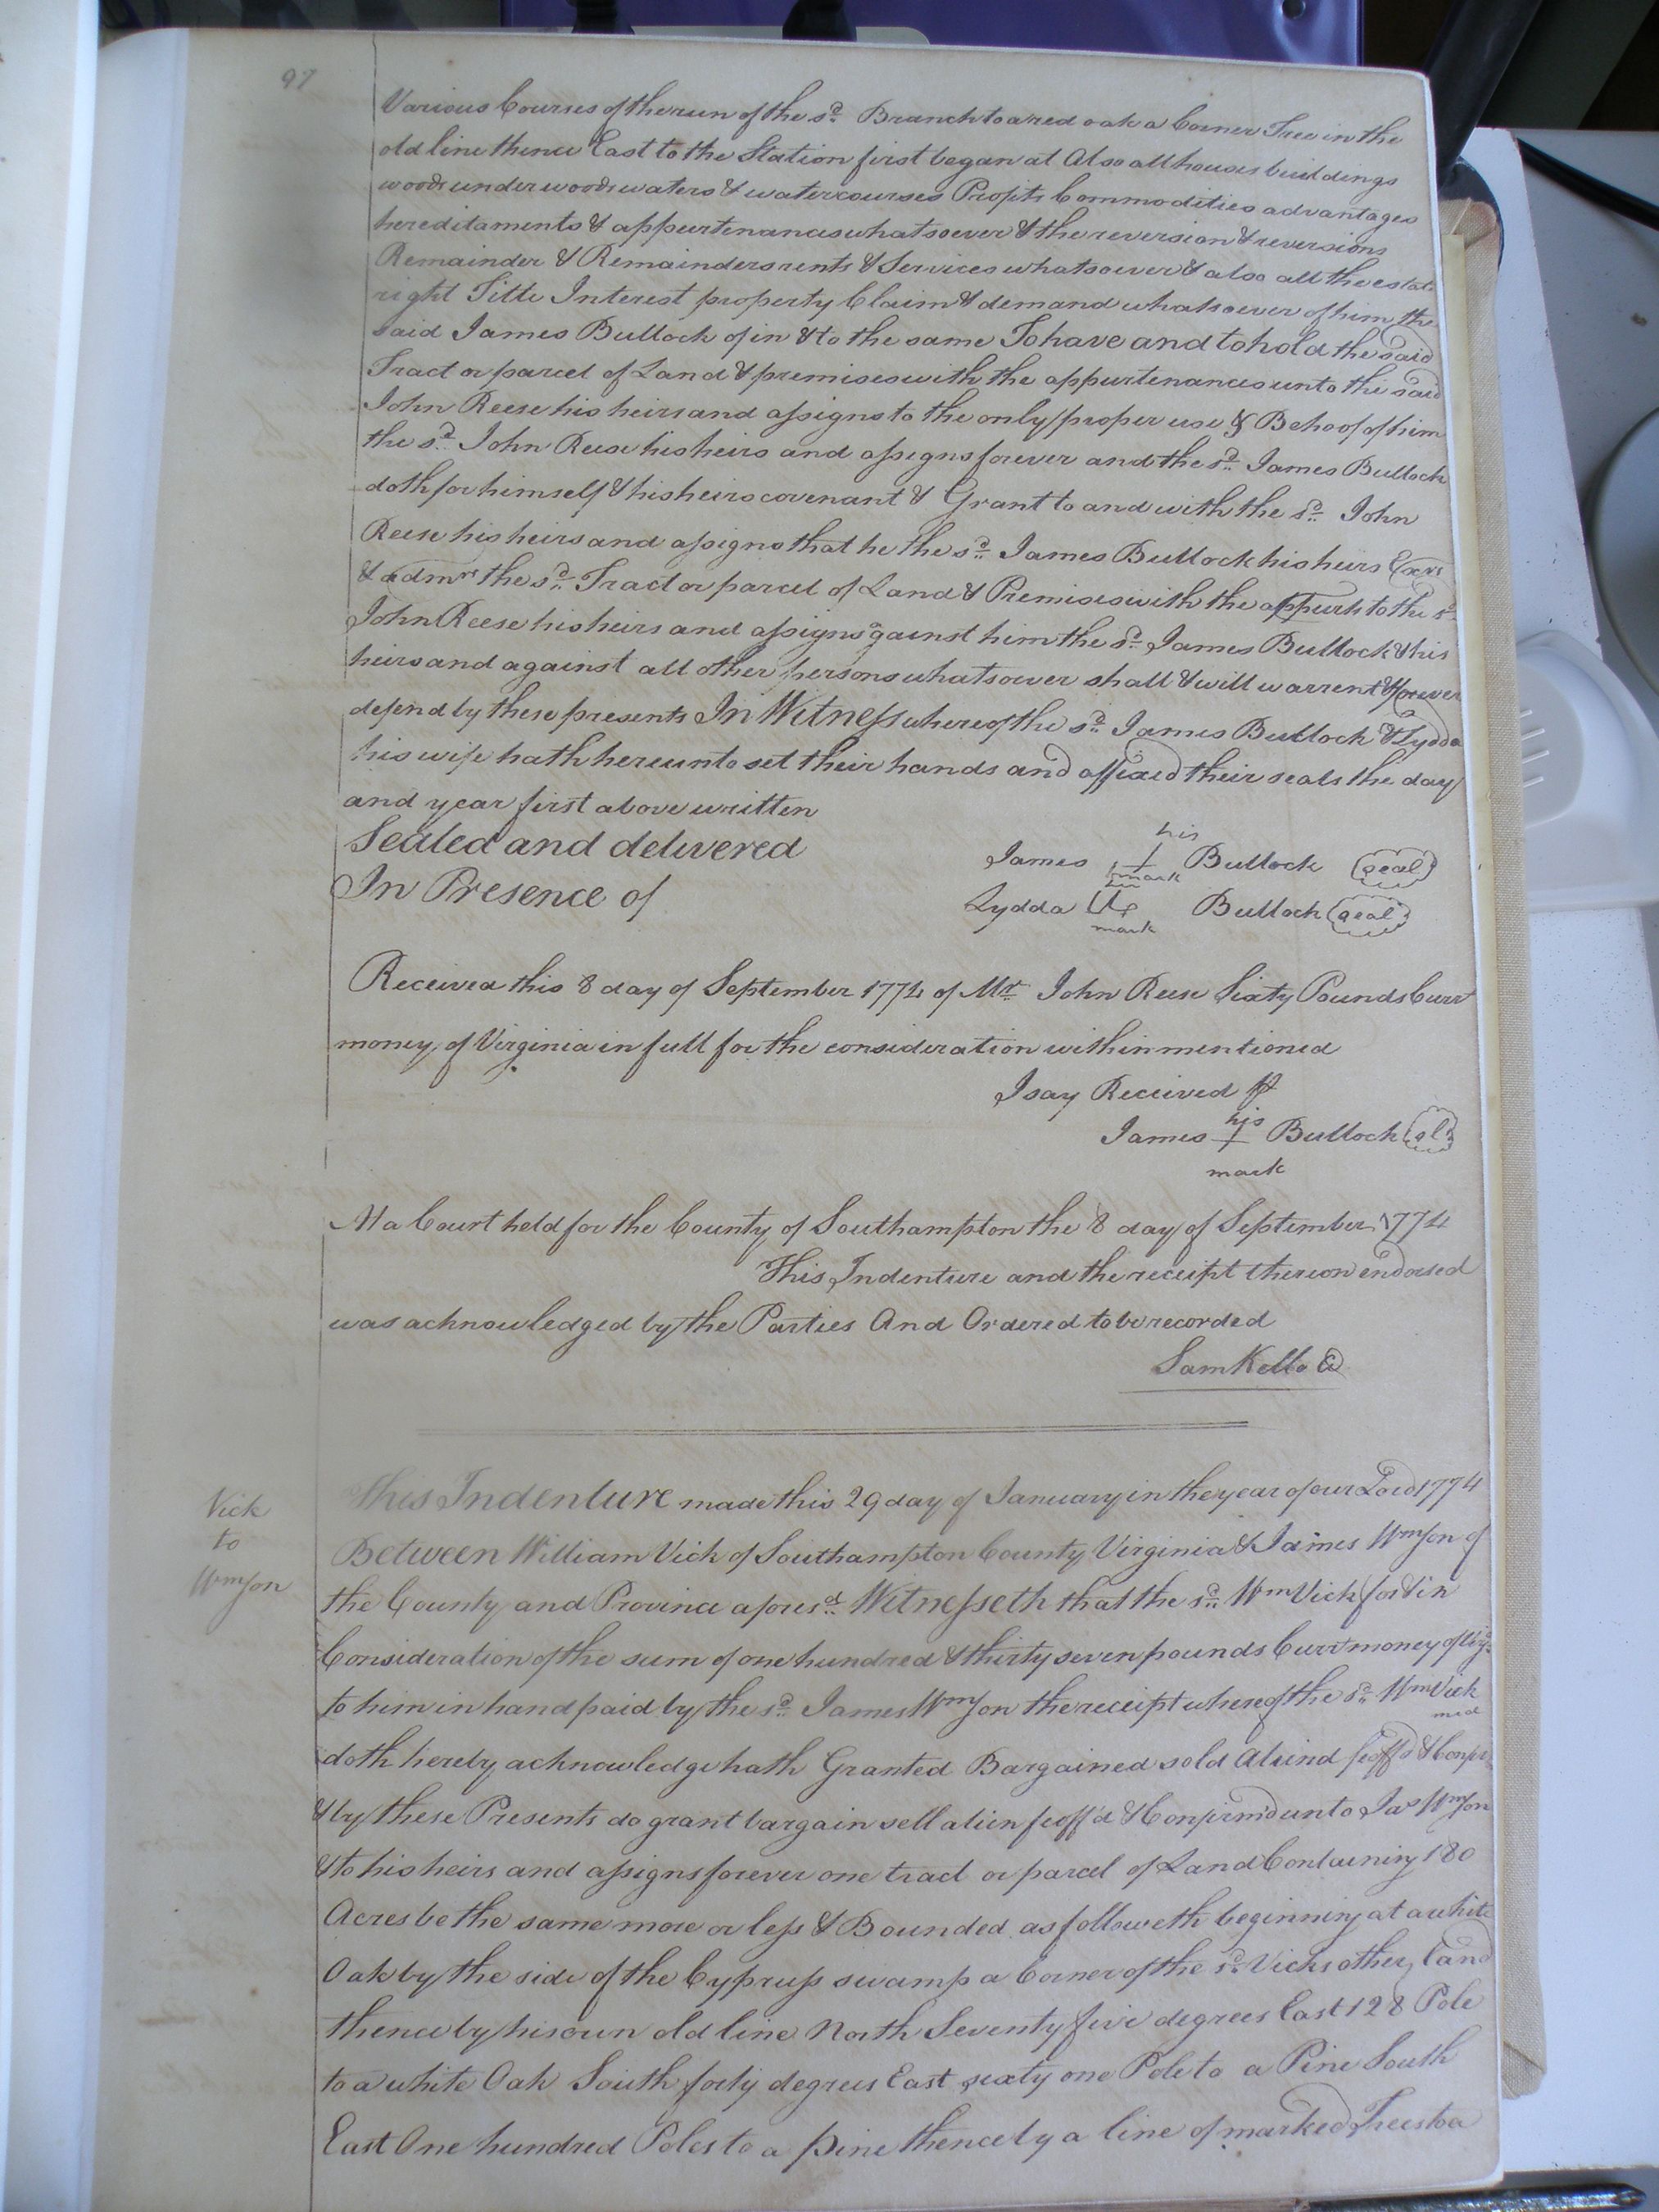 97
Various Courses of the run of the sd. Branch to a red oak a Corner Tree in the
old line thence East to the Station first began at Also all houses buildings
woods under woods waters & watercourses Profits Commodities advantages
hereditaments & appurtenances whatsoever & the reversion & reversions
Remainder & Remainders rents & Services whatsoever & also all the estate
right Title Interest property Claim & demand whatsoever of him the
said James Bullock of in & to the same To have and to hold the said
Tract or parcel of Land & premises with the appurtenances unto the said
John Reese his heirs and assigns to the only proper use & Behoof of him
the sd. John Reese his heirs and assigns forever and the sd. James Bullock
doth for himself & his heirs covenant & Grant to and with the sd. John
Reese his heirs and assigns that he the sd. James Bullock his heirs Exrs
& admrs the sd. Tract or parcel of Land & Premises with the appurts to the sd.
John Reese his heirs and assigns against him the sd. James Bullock & his
heirs and against all other persons whatsoever shall & will warrent & forever
defend by these presents In Witness whereof the sd. James Bullock & Lydda
his wife hath hereunto set their hands and affixed their seals the day
and year first above written
Sealed and delivered
In Presence of
his
James Bullock seal
mark
Lydda Bullock seal
mark
Received this 8 day of September 1774 of Mr. John Reese Sixty Pounds Curr
money of Virginia in full for the consideration within mentioned
I say Received
his
James Bullock sl
mark
At a Court held for the County of Southampton the 8 day of September 1774
This Indenture and the receipt thereon endorsed
was acknowledged by the Parties And Ordered to be recorded
Sam Kello
Vick
to
Wmson
This Indenture made this 29 day of January in the year of our Lord 1774
Between William Vick of Southampton County Virginia & James Wmson of
the County and Province aforesd. Witnesseth that the sd. Wm Vick for & in
Consideration of the sum of one hundred & thirty seven pounds Curr money of Virg
to him in hand paid by the sd. James Wmson the receipt whereof the sd. Wm Vick
doth hereby acknowledge hath Granted Bargained sold Aliend feoff'd & Confirmed
& by these Presents do grant bargain sell alien feoff'd & Confirmd unto Jas Wmson
& to his heirs and assigns forever one tract or parcel of Land Containing 180
Acres be the same more or less & Bounded as followeth beginning at a white
Oak by the side of the Cypruss swamp a Corner of the sd. Vicks other land
thence by his own old line North Seventy five degrees East 128 Pole
to a white Oak South forty degrees East sixty one Pole to a Pine South
East One hundred Poles to a pine thence by a line of marked Trees to a